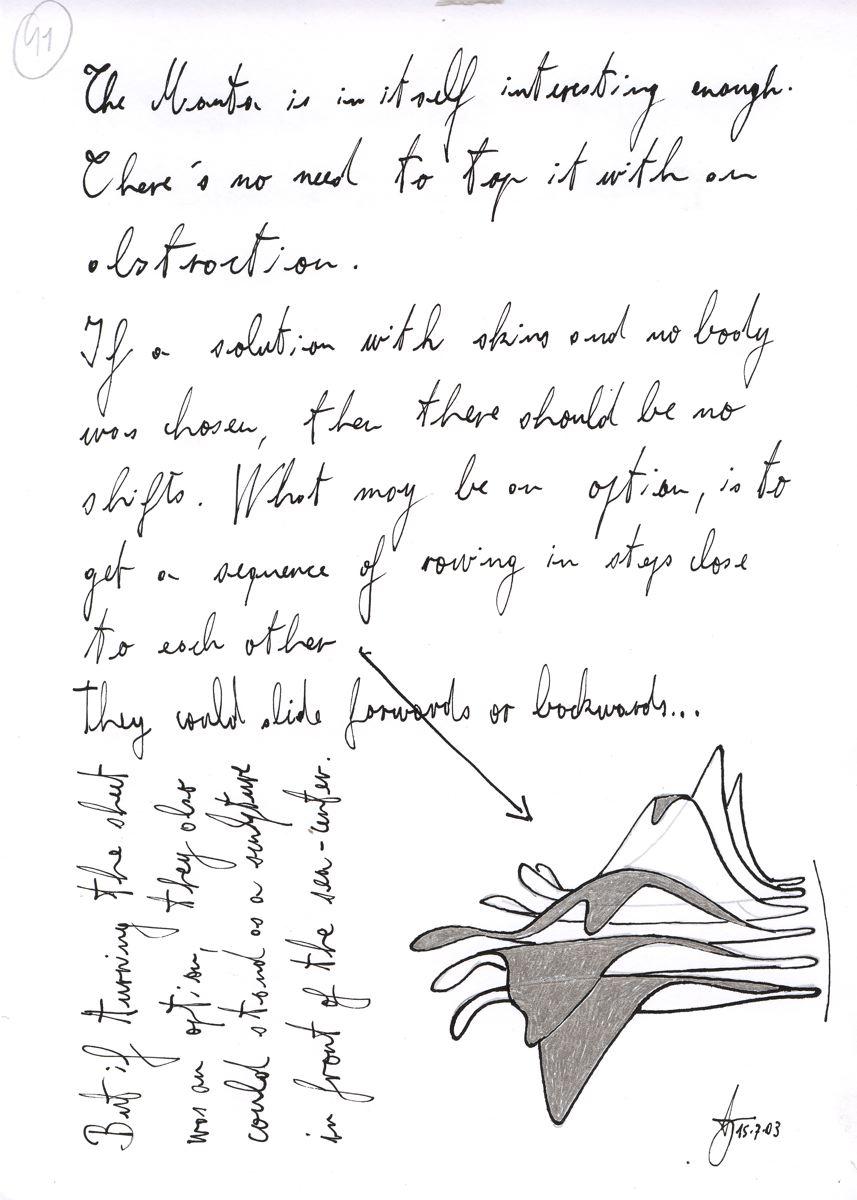 41
The Manta is in itself interesting enough.
There's no need to top it with an
abstraction.
If a solution with skins and no body
was chosen, then there should be no
shifts. What may be an option, is to
get a sequence of rowing in steps close
to each other
they could slide forwards or backwards...
But if turning the sheet
was an option, they also
could stand as a sculpture
in front of the sea-center.
15.7.03